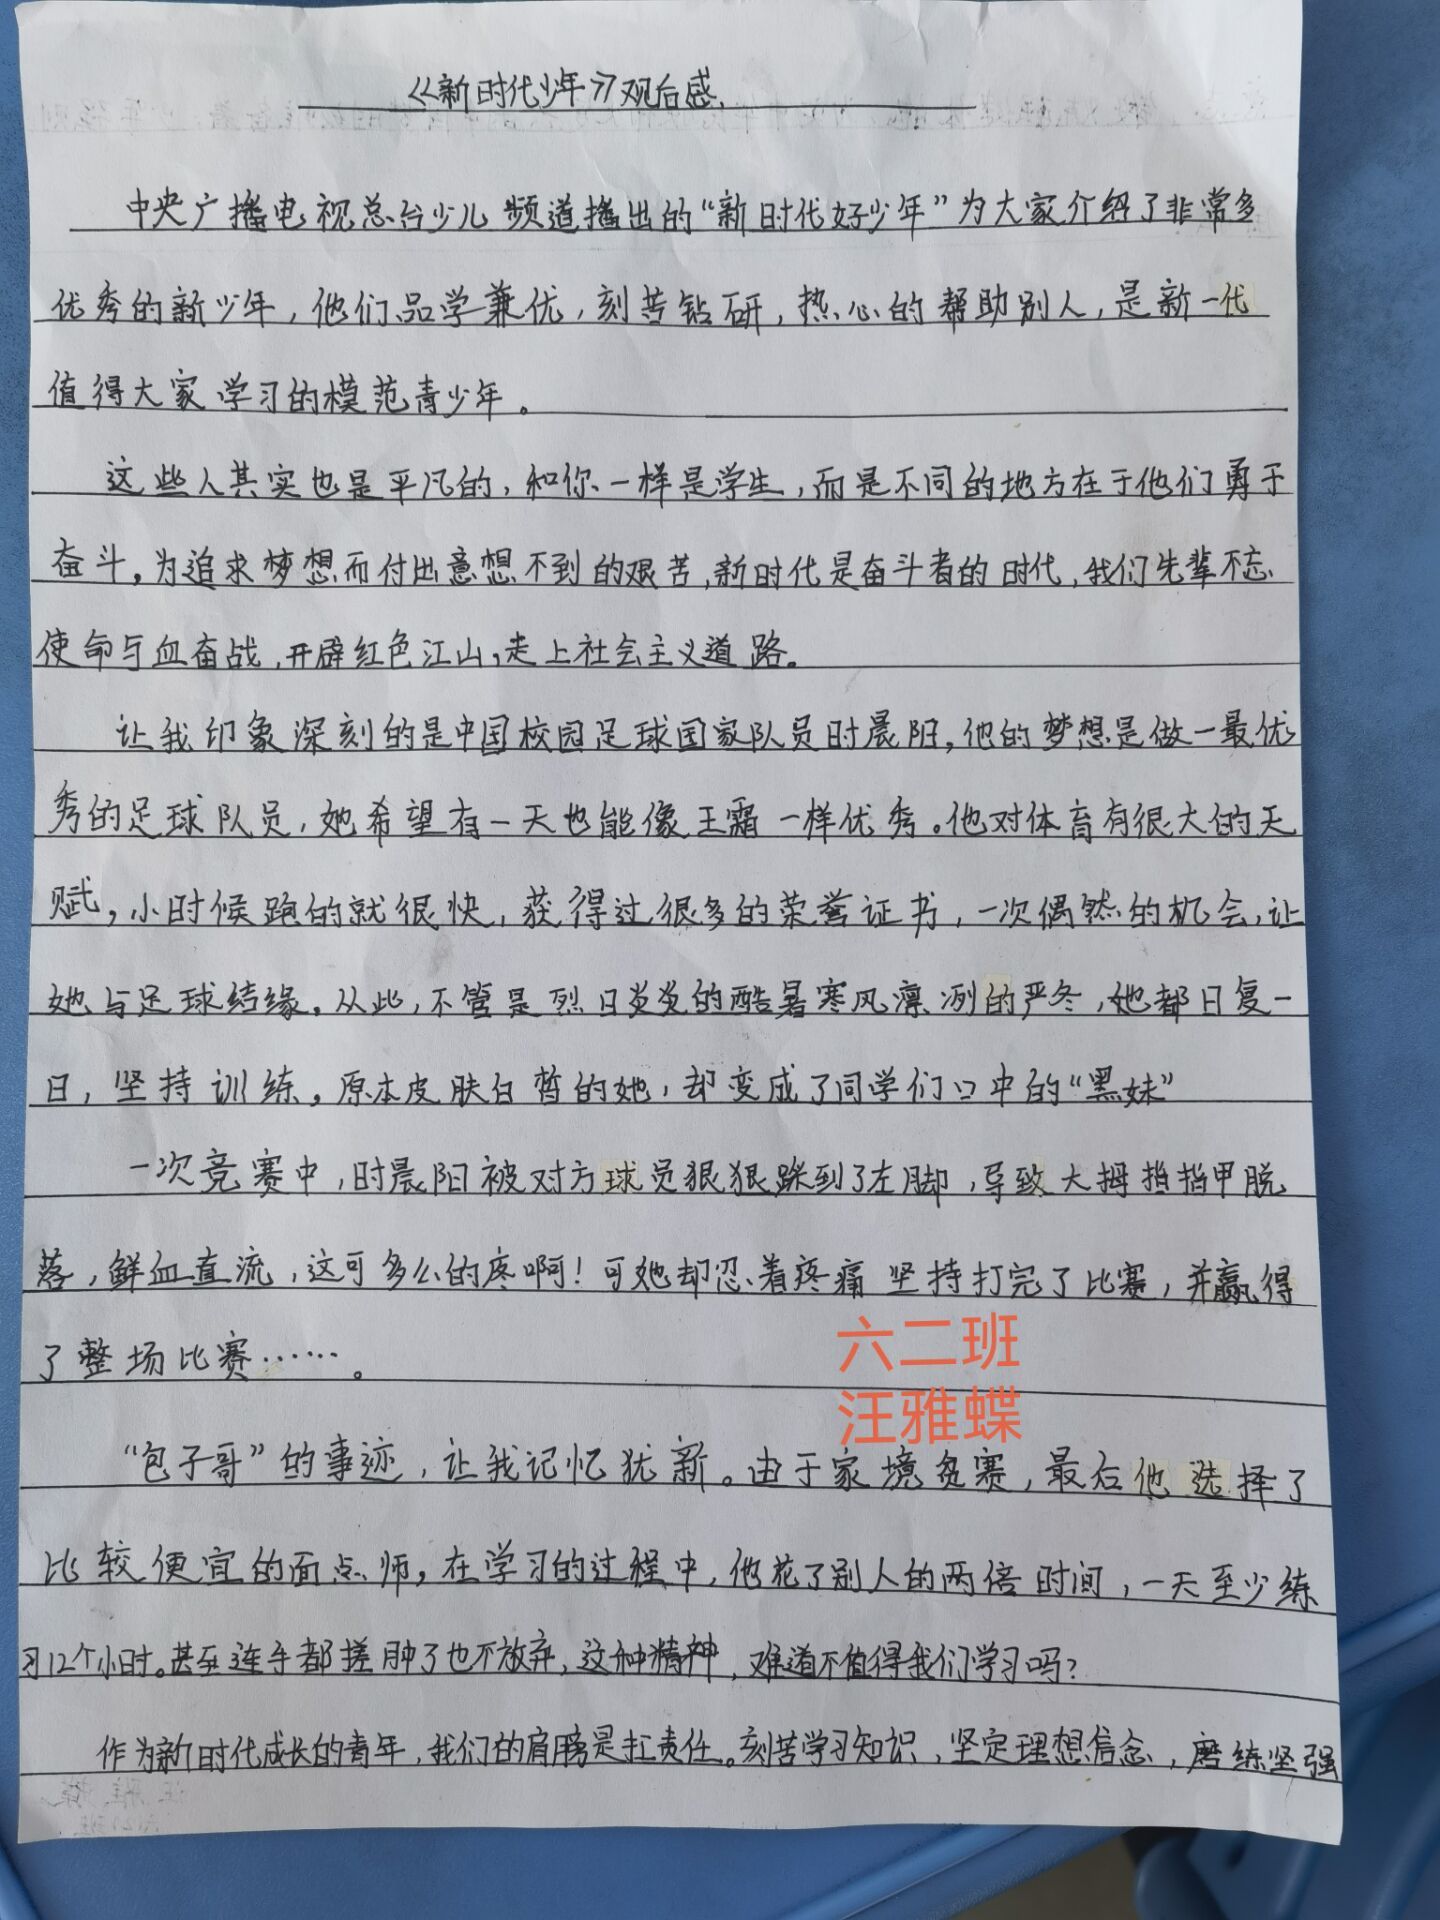 《新时代少年》观后感
中央广播电视总台少儿频道播出的“新时代好少年”为大家介绍了非常多
优秀的新少年，他们品学兼优，刻苦钻研，热心的帮助别人，是新一代
值得大家学习的模范青少年。
这些人其实也是平凡的，和你一样是学生，而是不同的地方在于他们勇于
奋斗，为追求梦想而付出意想不到的艰苦，新时代是奋斗者的时代，我们先辈不忘
使命与血奋战，开辟红色江山，走上社会主义道路。
让我印象深刻的是中国校园足球国家队员时晨阳，他的梦想是做一最优
秀的足球队员，她希望有一天也能像王霜一样优秀。他对体育有很大的天
赋，小时候跑的就很快，获得过很多的荣誉证书，一次偶然的机会，让
她与足球结缘。从此，不管是烈日炎炎的酷暑寒风凛冽的严冬，她都日复一
日，坚持训练。原本皮肤白皙的她，却变成了同学们口中的“黑妹”
一次竞赛中，时晨阳被对方球员狠狠踩到了左脚，导致大拇指指甲脱
落，鲜血直流，这可多么的疼啊！可她却忍着疼痛坚持打完了比赛，并赢得
了整场比赛……。
六二班
汪雅蝶
“包子哥”的事迹，让我记忆犹新。由于家境贫赛，最后他选择了
比较便宜的面点师，在学习的过程中，他花了别人的两倍时间，一天至少练
习12个小时。甚至连手都搓肿了也不放弃，这种精神，难道不值得我们学习吗？
作为新时代成长的青年，我们的肩膀是扛责任。刻苦学习知识，坚定理想信念，磨练坚强